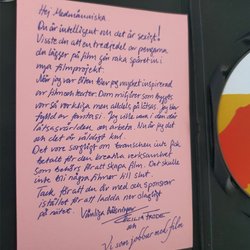 Hej Medmänniska
Du är intelligent och det är sexigt!
Visste du att en tredjedel av pengarna
du lägger på film går raka spåret in i
nya filmprojekt.
När jag var liten blev jag mycket inspirerad
av filmvärlden. Dom miljöer som byggts
var så verkliga men alldeles på låtsas. Jag blev
fylld av fantasi. Jag ville in i den där
låtsasvärlden och arbeta. Nu är jag det
och det är väldigt kul.
Det vore sorgligt om branschen inte fick
betalt för den kreativa verksamhet
som behövs för att skapa film. Det skulle
inte bli några filmer till slut.
Tack för att du är med och sponsrar
istället för att ladda ner olagligt
på nätet. Vänliga hälsningar
CECILIA FRODE
och
Vi som jobbar med film